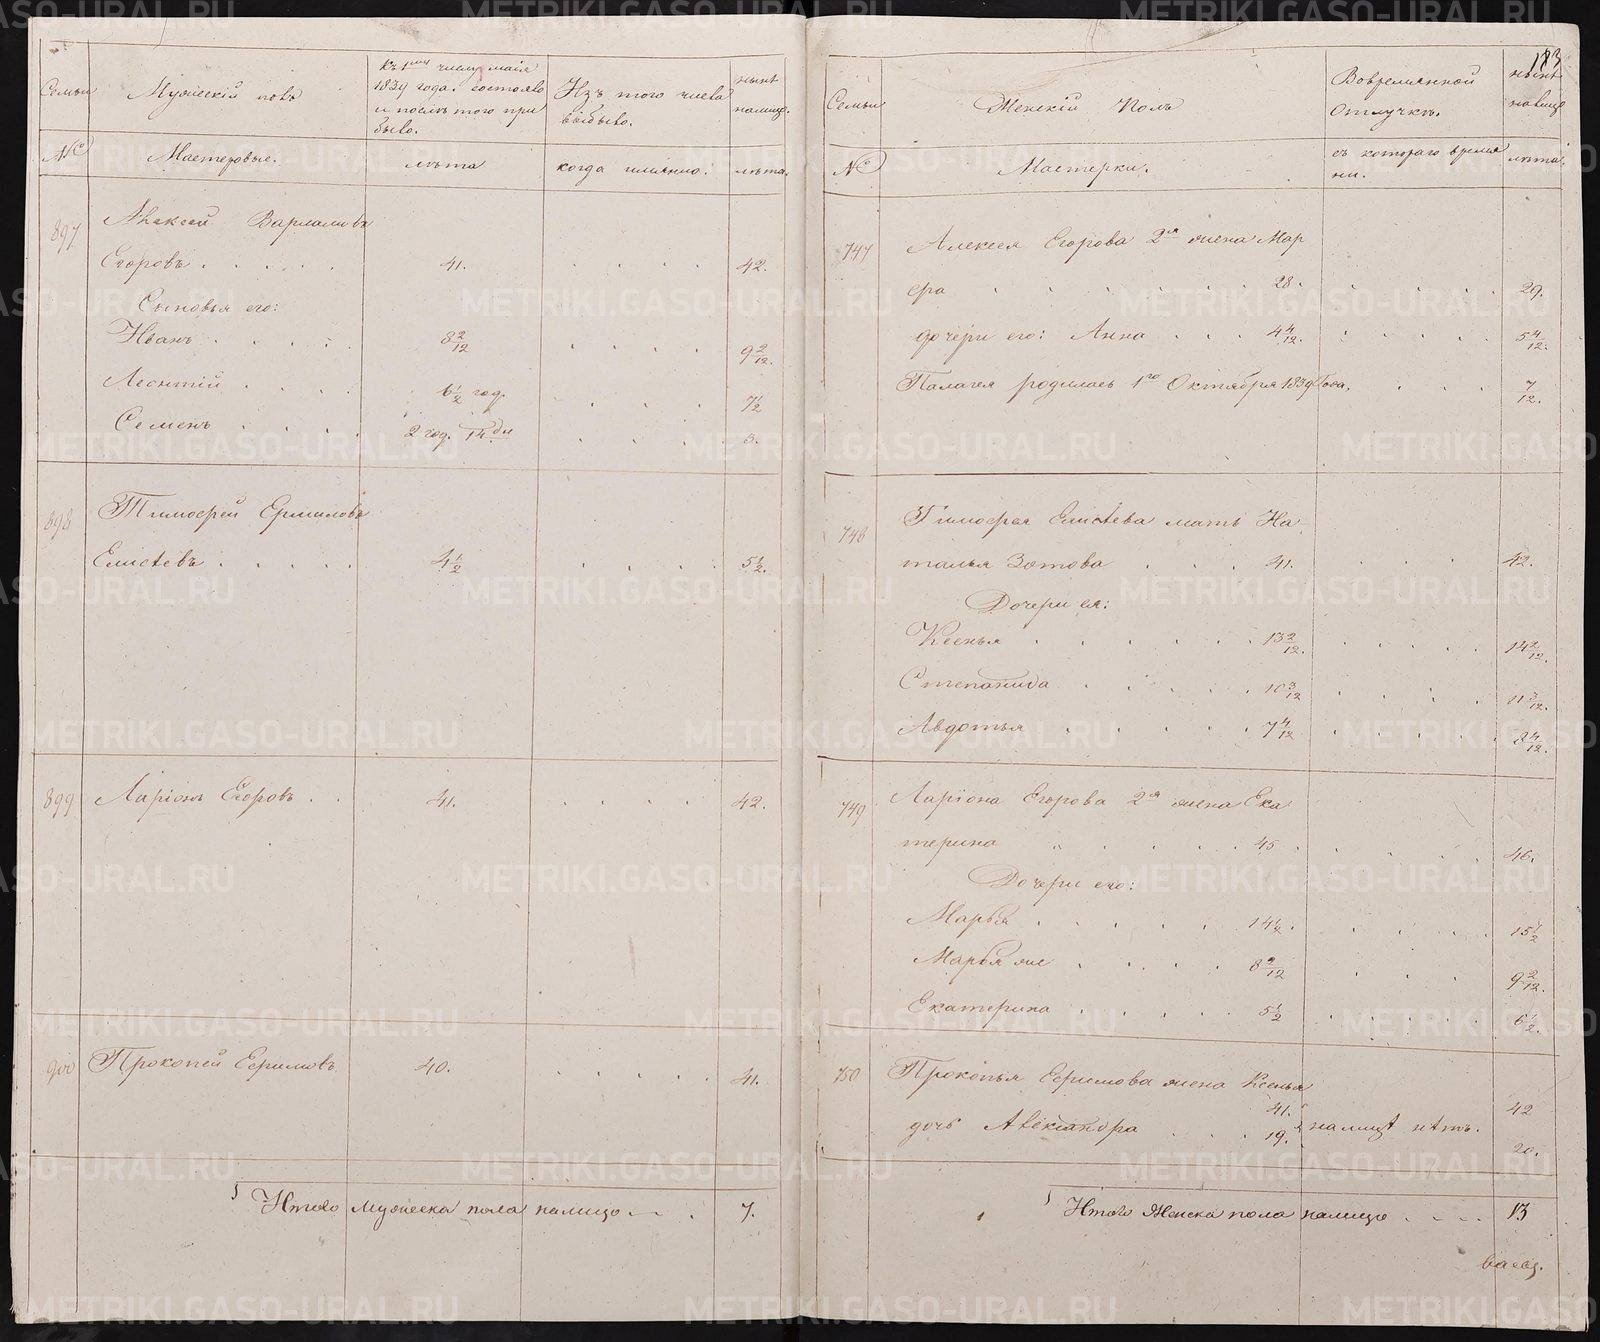 183
Семьи
Мужескій полъ
Къ 1му числу маія
1839 года состояло
и послѣ того при
было.
Изъ того числа
выбыло.
нынѣ
налицо.
№
Мастеровые.
лѣта
когда имянно.
лѣта.
897
Алексей Варламовъ
Егоровъ . . . . . 41. 42.
Сыновья его:
Иванъ . . . . . 8 2/12 9 2/12.
Леонтій . . . . 6 1/2 год. 7 1/2
Семенъ . . . . 2 год. 14 дн 3.
898
Тимофей Ермиловъ
Елисѣевъ . . . . . 4 1/2 5 1/2.
899 Ларіонъ Егоровъ . . 41. 42.
900 Прокопей Ефимовъ 40. 41.
Итого мужеска пола налицо . . . 7.
Семьи
Женскій Полъ
Вовременной
Отлучкѣ.
нынѣ
налицо
№
Мастерки.
съ котораго време
ни.
лѣта.
747 Алексея Егорова 2я жена Мар
фа . . . . . . 28. 29.
дочери его: Анна . . . 4 4/12. 5 4/12.
Палагея родилась 1го Октября 1839 Года. 7/12.
748 Тимофея Елисѣева мать На
талья Зотова . . . 41. 42.
Дочери ея:
Ксенья . . . . . . 13 2/12. 14 2/12.
Степанида . . . . . 10 3/12 11 3/12.
Авдотья . . . . . 7 4/12 8 4/12.
749 Ларіона Егорова 2я жена Ека
терина . . . . . 45 46.
Дочери его:
Марья . . . . . 14 1/2. 15 1/2
Марья же . . . . 8 2/12 9 2/12.
Екатерина . . . . . 5 1/2 6 1/2.
750 Прокопья Ефимова жена Ксенья
41. 42
дочь Александра . . . 19. налицѣ нѣтъ. 20.
Итого Женска пола налицо . . . . 13
METRIKI.GASO-URAL.RU